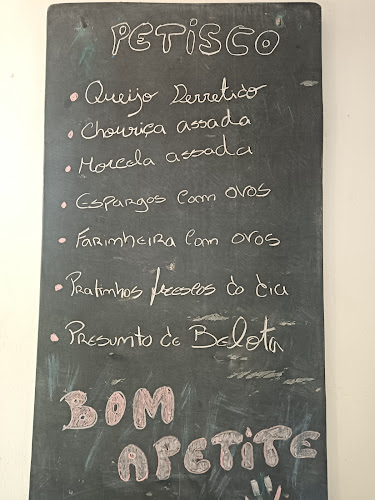 PETISCO
• Queijo Derretido
• Chouriça assada
• Morcela assada
• ESPARGOS COM OVOS
• FARINHEIRA COM OVOS
• PRATINHOS frescos do dia
• PRESUMTO DE BELOTA
BOM
APETITE